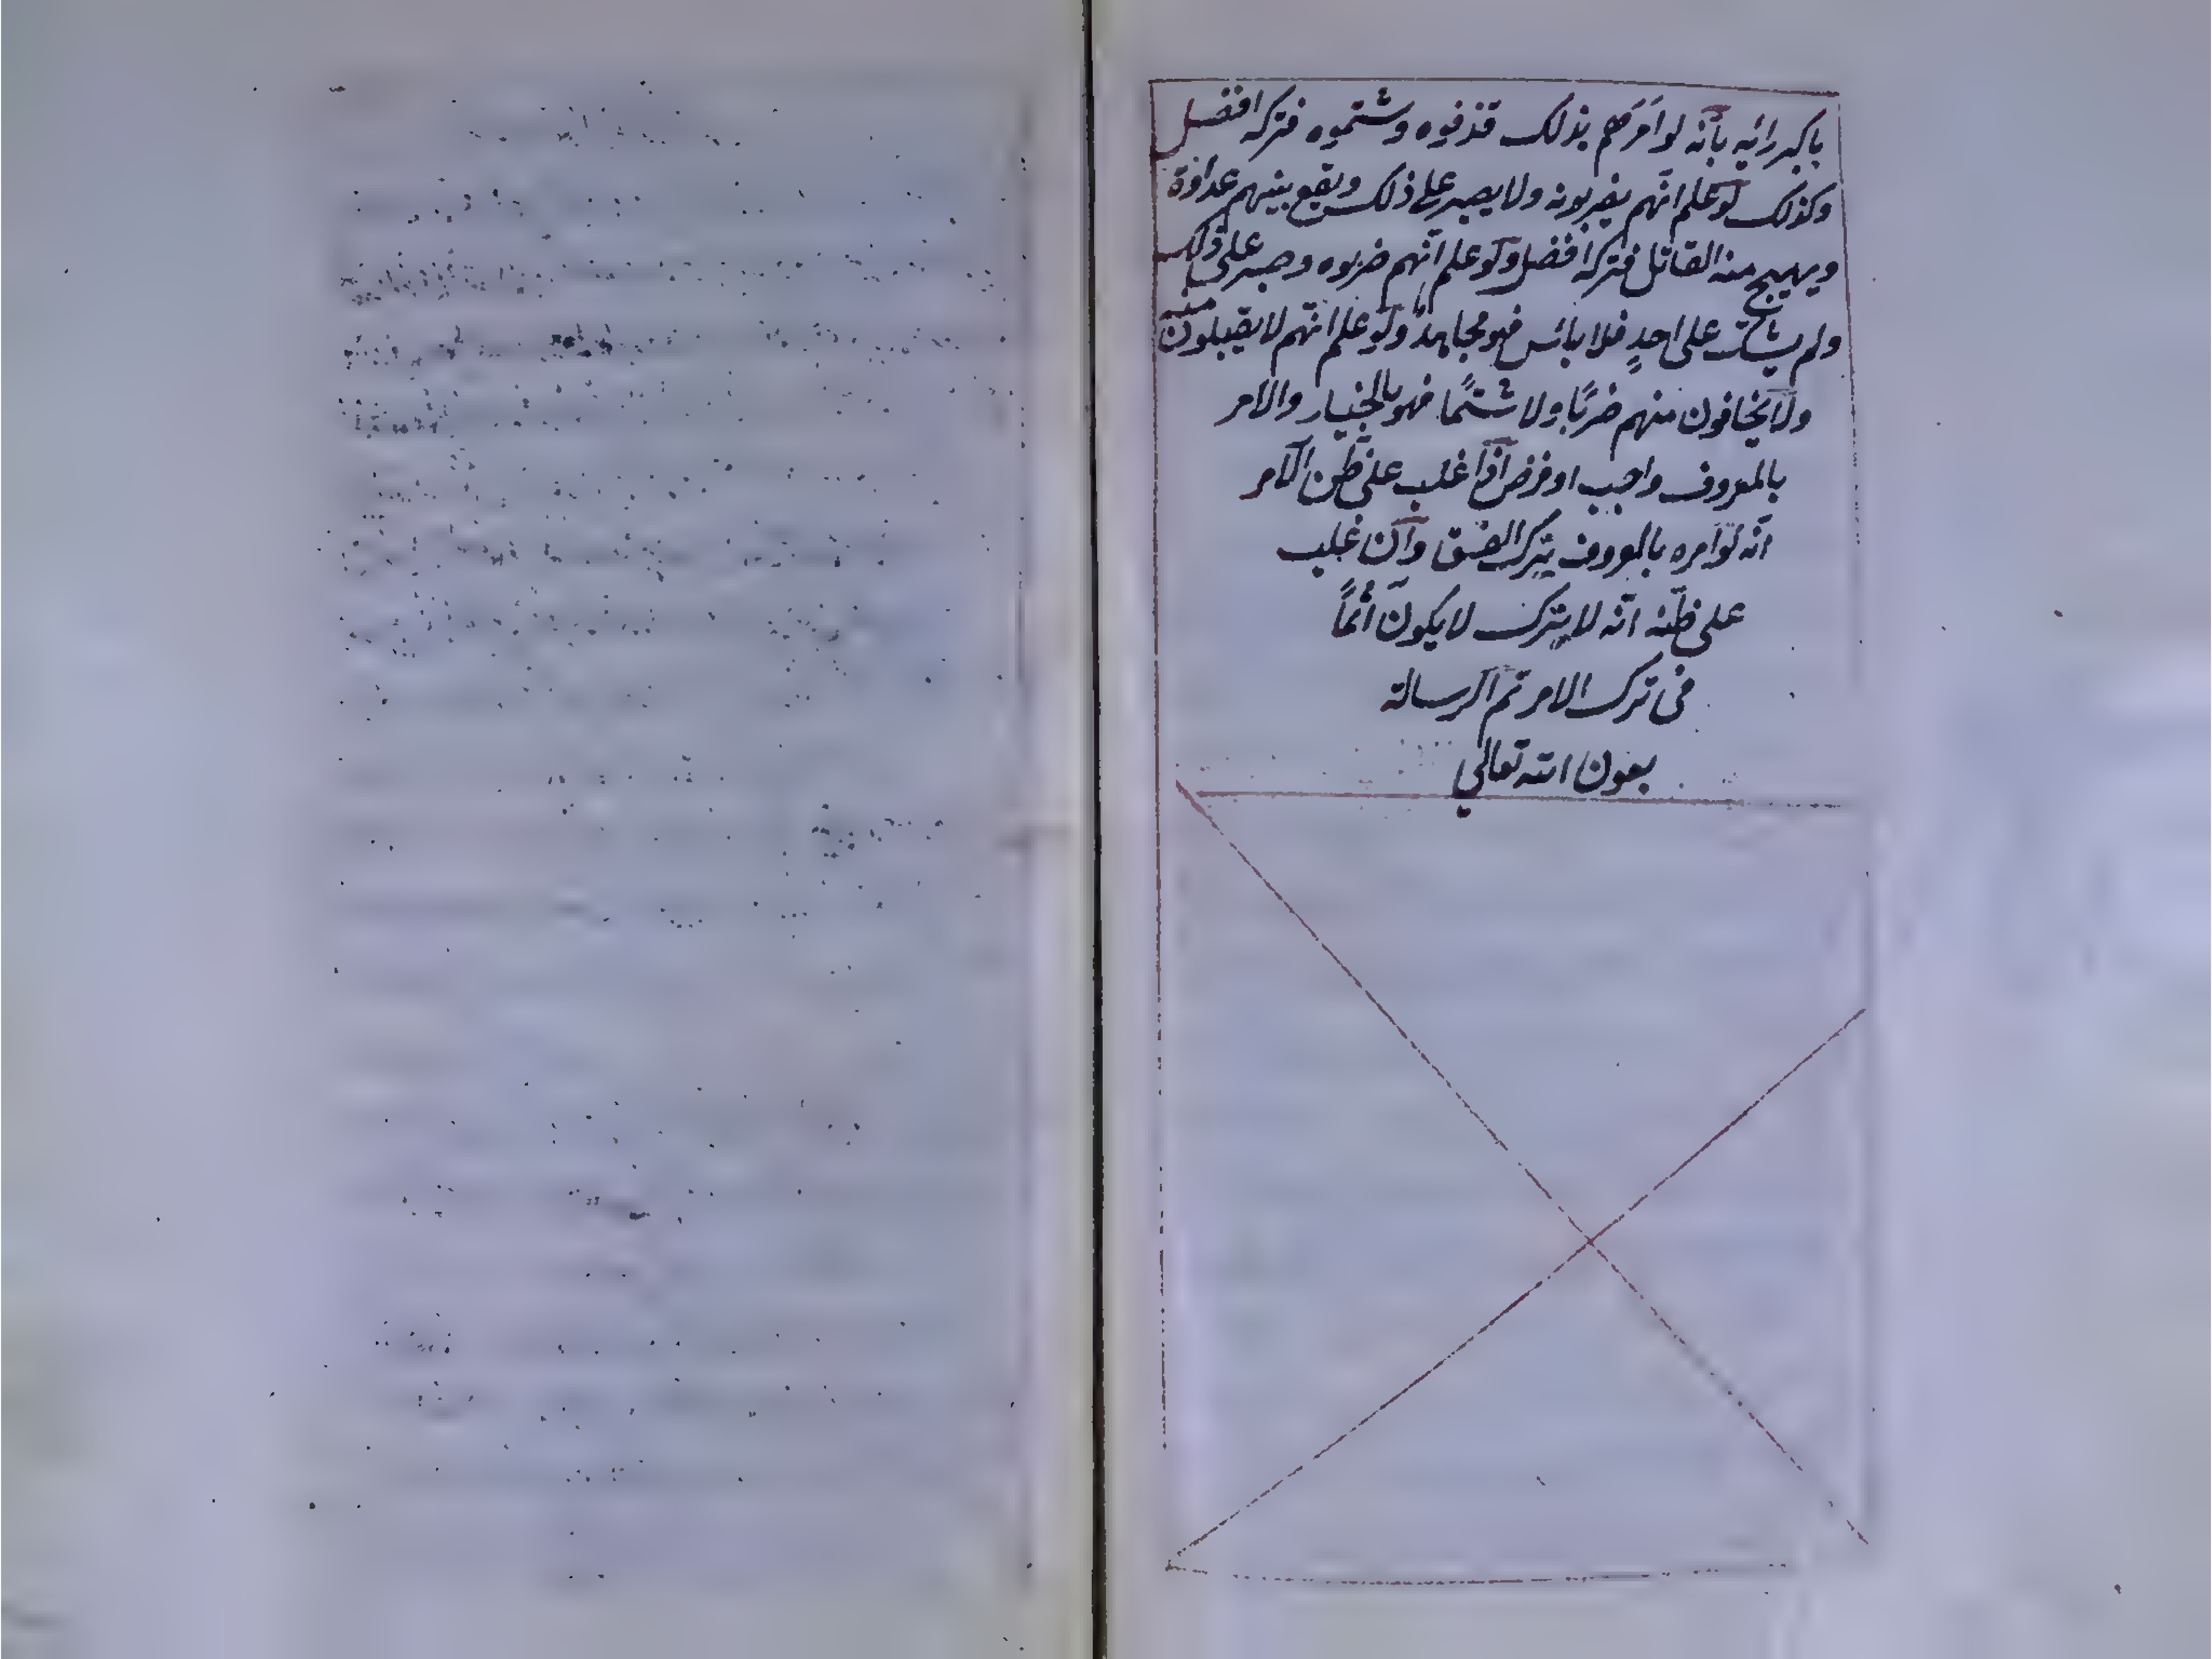 باكبر رائيه بأنه لو امَرَهم بذلك قذفوه وشتموه فتركه افضل
وكذلك لو علم انهم يضربونه ولا يصبر على ذلك ويقع بينهم عداوة
ويهيج منه القاتل فتركه افضل ولو علم انهم ضربوه وصبر على ذلك
ولم يشكّ على احدٍ فلا بائس فهو مجاهدٌ ولو علم انهم لا يقبلون منه
ولا يخافون منهم ضربًا ولا شتمًا فهو بالخيار والامر
بالمعروف واجب او فرض اذا غلب على ظن الآمر
انه لو امره بالمعروف يترك الفسق وان غلب
على ظنّه انّه لا يترك لا يكون آثمًا
فى ترك الامر تم الرسالة
بعون الله تعالى